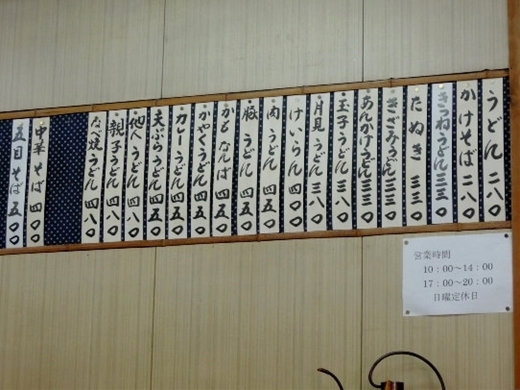 うどん 二八〇
かけそば 二八〇
きつねうどん 三三〇
たぬき 三三〇
きざみうどん 三三〇
あんかけうどん 三三〇
玉子うどん 三八〇
月見うどん 三八〇
けいらん 四〇〇
肉うどん 四五〇
かもなんば 四五〇
かやくうどん 四五〇
カレーうどん 四五〇
天ぷらうどん 四五〇
他人うどん 四八〇
親子うどん 四八〇
なべ焼うどん 四八〇
中華そば 四〇〇
五目そば 五〇〇
営業時間
10：00～14：00
17：00～20：00
日曜定休日